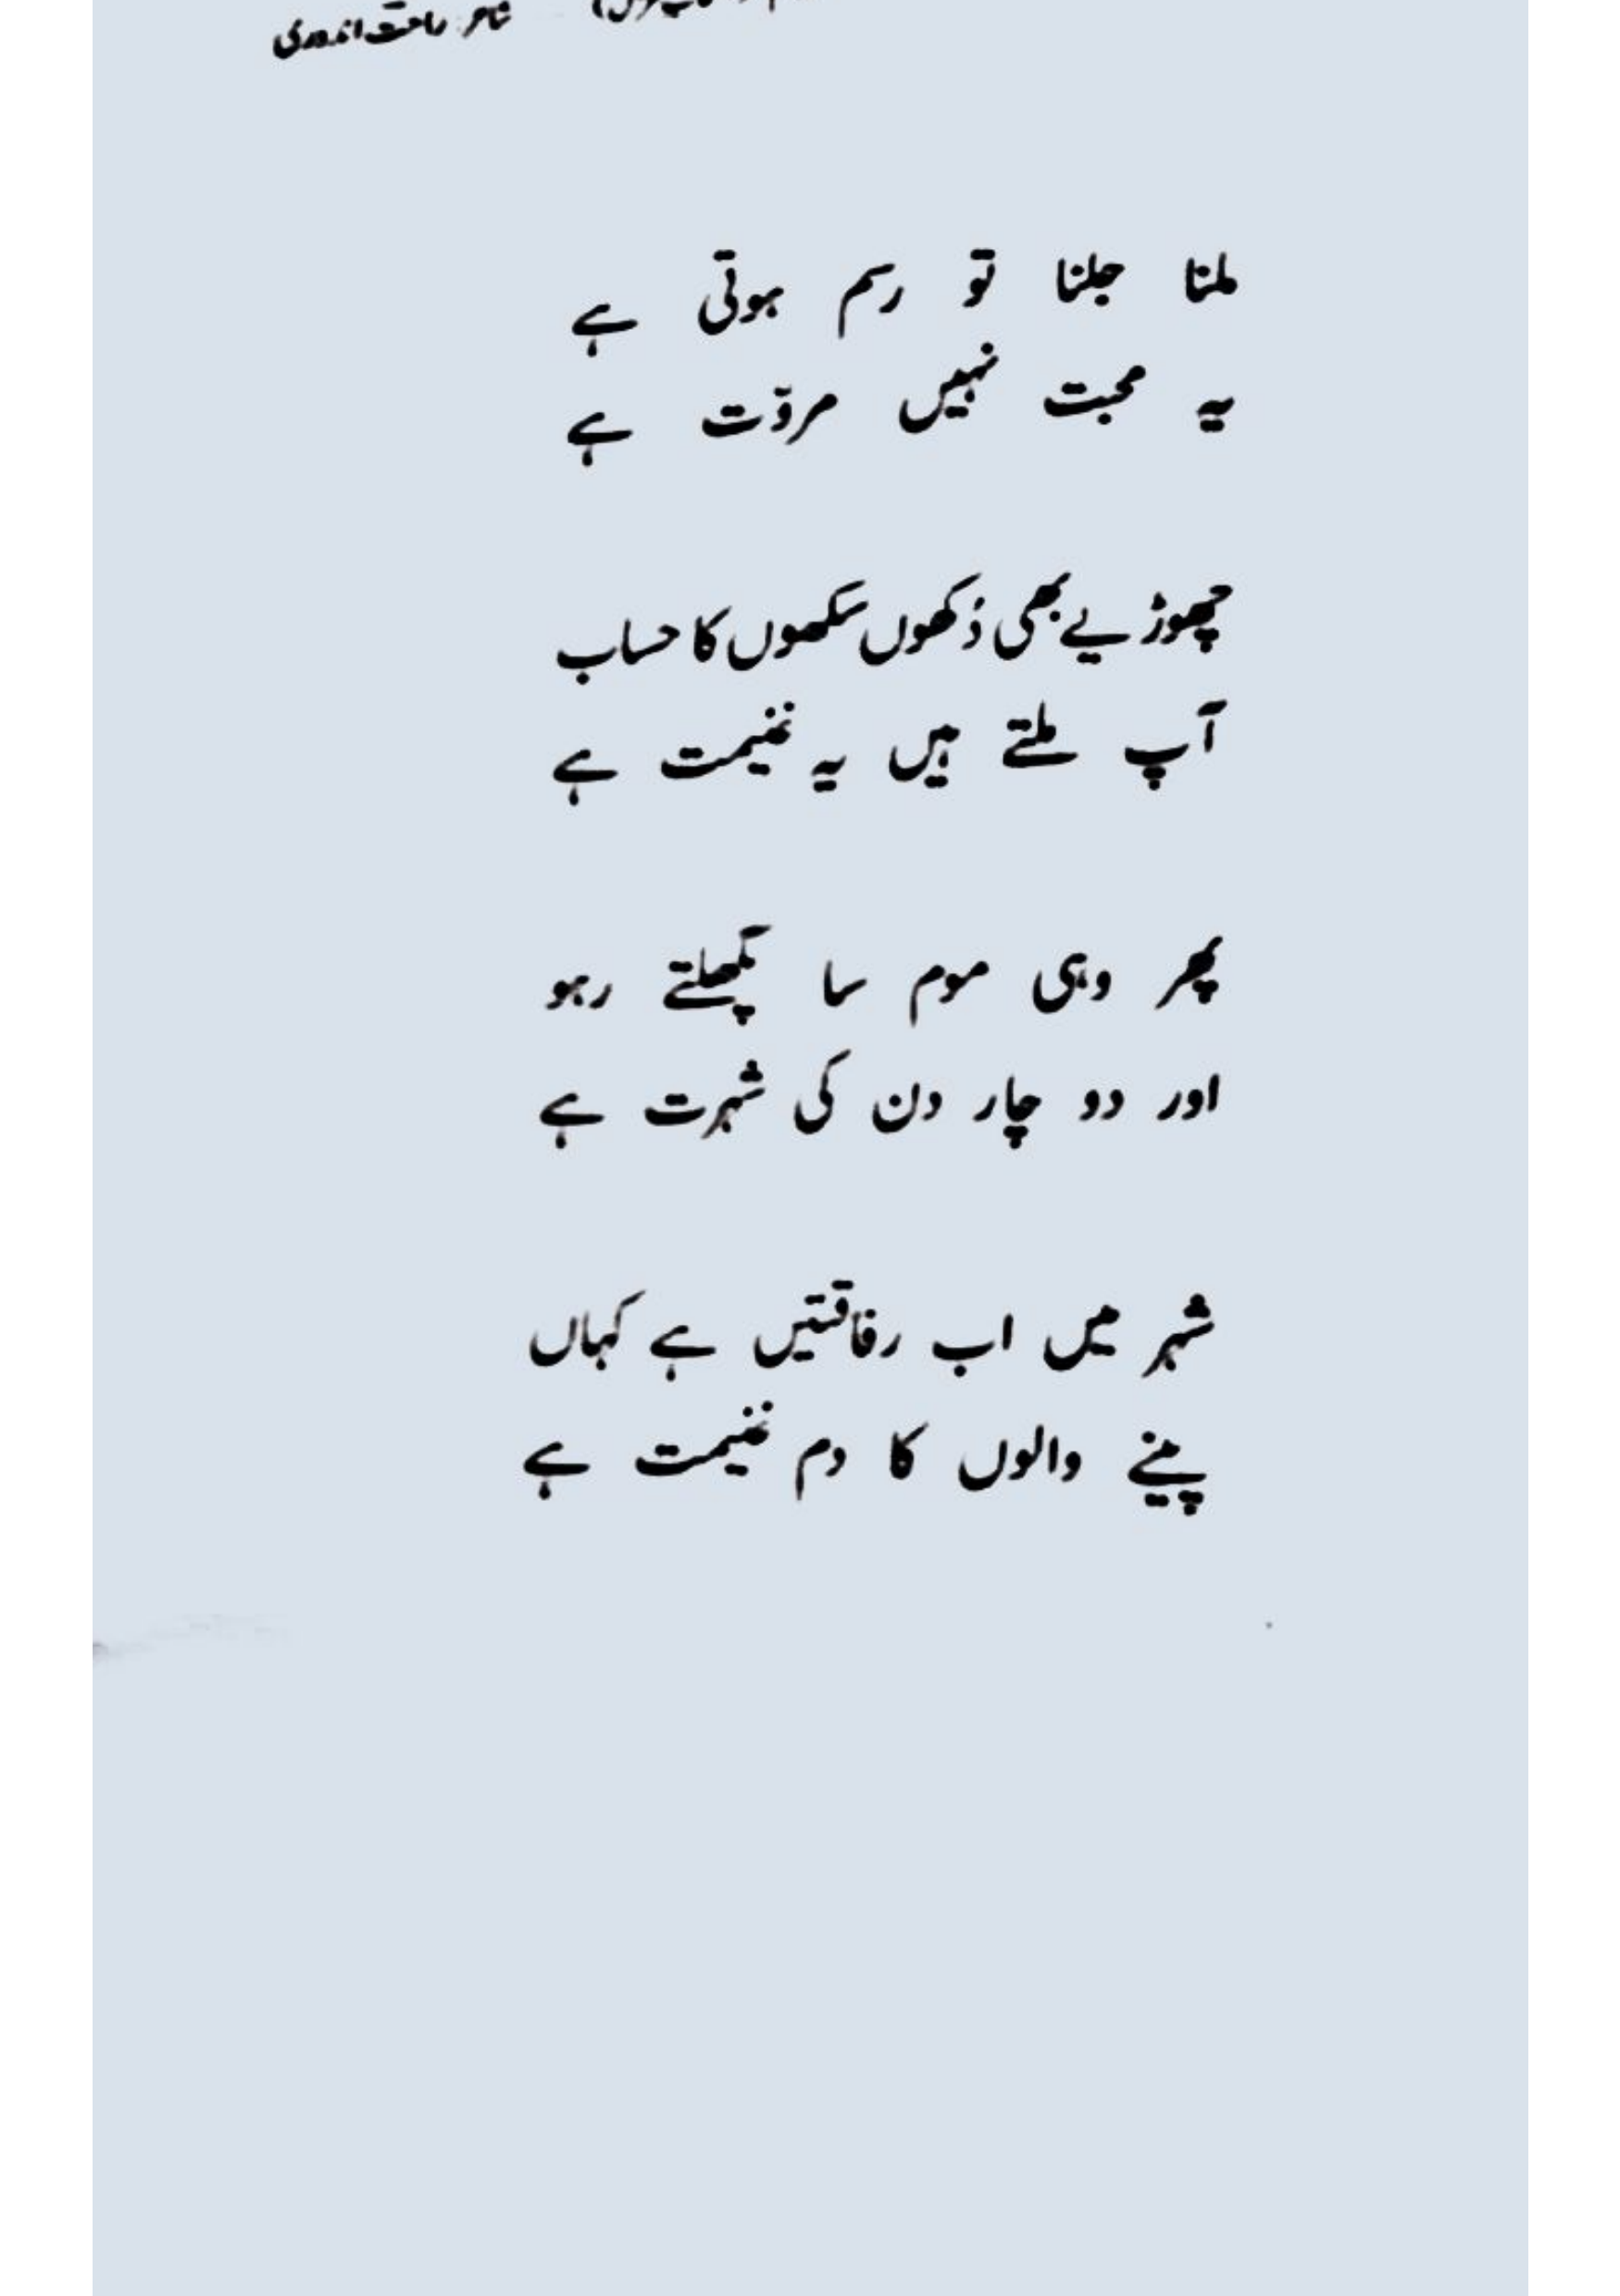 شاعر راحت اندوری
ملنا جلنا تو رسم ہوتی ہے
یہ محبت نہیں مروّت ہے
چھوڑیے بھی دُکھوں سکھوں کا حساب
آپ ملتے ہیں یہ غنیمت ہے
پھر وہی موم سا پگھلتے رہو
اور دو چار دن کی شہرت ہے
شہر میں اب رفاقتیں ہے کہاں
پینے والوں کا دم غنیمت ہے